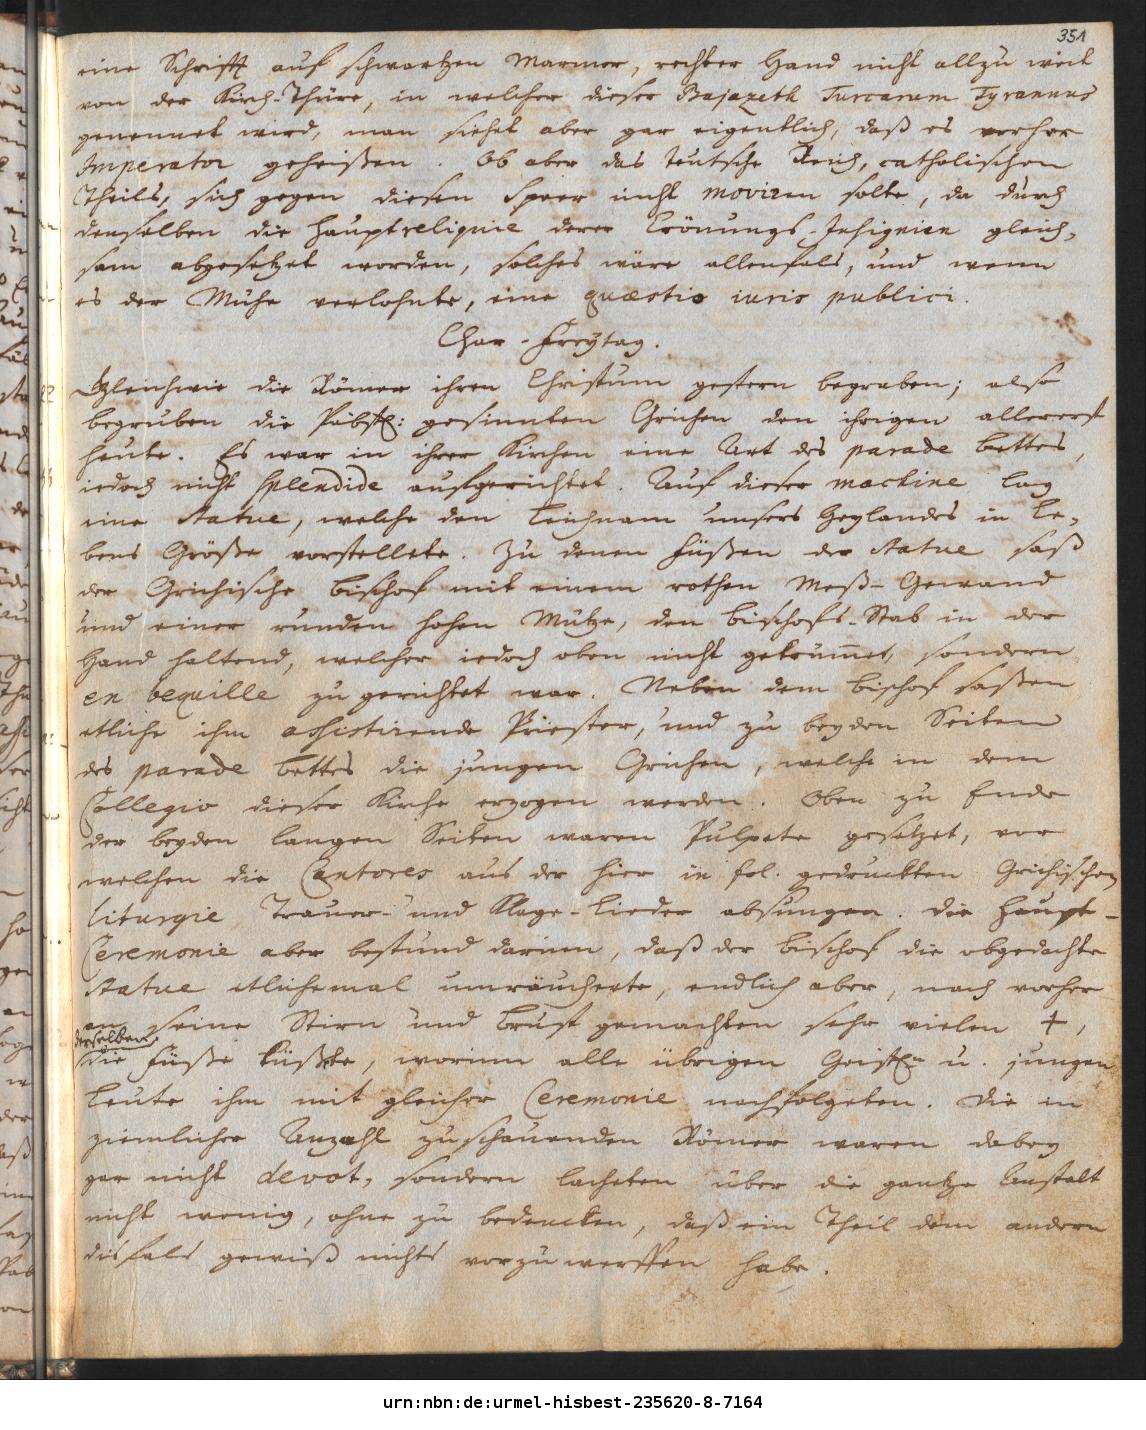 351
eine Schrifft auf schwartzen Marmor, rechter Hand nicht allzu weit
von der Kirch-Thüre, in welcher dieser Bajazeth Turcarum Tyrannus
genennet wird, man siehet aber gar eigentlich, daß es vorher
Imperator geheißen. Ob aber das teutsche Reich, catholischen
Theils, sich gegen diesen Speer nicht moviren solte, da durch
denselben die Hauptreliquie derer Crönungs-Insignien gleich,
sam abgesetzet worden, solches wäre allenfals, und wenn
es der Mühe verlohnte, eine quæstio iuris publici.
Char-Freytag.
Gleichwie die Römer ihren Christum gestern begraben; also
begruben die Päbstl: gesinnten Grichen den ihrigen allererst
heute. Es war in ihrer Kirchen eine Art des parade bettes,
iedoch nicht splendide aufgerichtet. Auf dieser machine lag
eine Statue, welche den Leichnam unsers Heylandes in Le,
bens Größe vorstellete. Zu denen Füßen der Statue saß
der Grichische Bischof mit einem rothen Meß-Gewand
und einer runden hohen Mütze, den Bischofs-Stab in der
Hand haltend, welcher iedoch oben nicht gekrümet, sondern
en bequille zu gerichtet war. Neben dem Bischof saßen
etliche ihm assistirende Priester, und zu beyden Seiten
des parade bettes die jungen Grichen, welche in dem
Collegio dieser Kirche erzogen werden. Oben zu Ende
der beyden langen Seiten waren Pulpete gesetzet, vor
welchen die Cantores aus der hier in fol. gedruckten Grichischen
Liturgie Trauer- und Klage-Lieder absungen. Die Haupt-
Ceremonie aber bestund darinn, daß der Bischof die obgedachte
Statue etlichemal umräucherte, endlich aber, nach vorher
an seine Stirn und Brust gemachten sehr vielen +,
derselben
die Füße küßte, worinn alle übrigen Geistl. u. jungen
Leute ihm mit gleicher Ceremonie nachfolgeten. Die in
ziemlicher Anzahl zuschauenden Römer waren dabey
gar nicht devot, sondern lacheten über die gantze Anstalt
nicht wenig, ohne zu bedencken, daß ein Theil dem andern
disfals gewiß nichts vorzuwerffen habe.
urn:nbn:de:urmel-hisbest-235620-8-7164